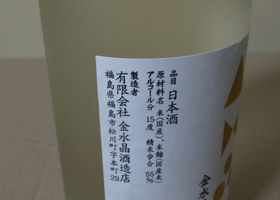 品目 日本酒
原材料名 米(国産)、米麹(国産米)
アルコール分 15度 精米歩合 55%
製造者
有限会社 金水晶酒造店
福島県福島市松川町字本町29
金水